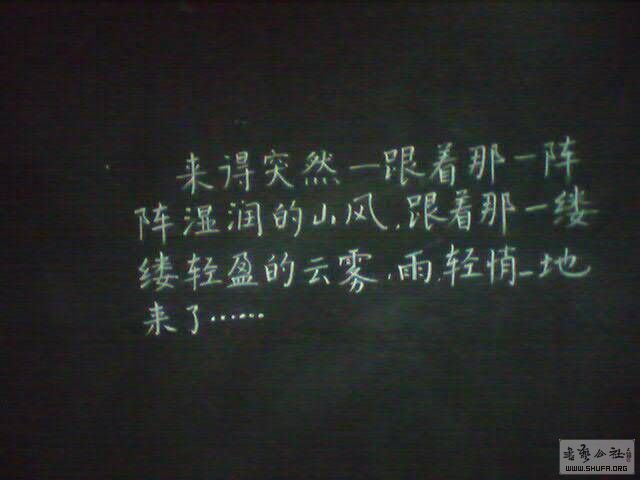 来得突然一跟着那一阵
阵湿润的小风,跟着那一缕
缕轻盈的云雾,雨,轻悄_地
来了……
书艺公社
WWW.SHUFA.ORG